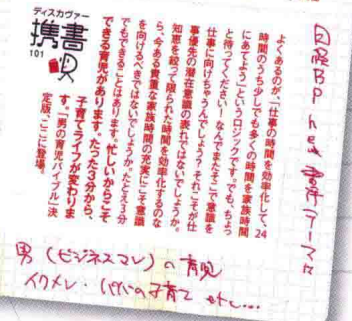 ディスカヴァー
携書
101
よくあるのが、「仕事の時間を効率化して、24
時間のうち少しでも多くの時間を家族時間
にあてよう」というロジックです。でも、ちょっ
と待ってください！なんでまたそこで意識を
仕事に向けちゃうんでしょう？それこそが仕
事優先の潜在意識の表れではないでしょうか。
知恵を絞って限られた時間を効率化するのな
ら、今ある貴重な家族時間の充実にこそ意識
を向けるべきではないでしょうか。たとえ3分
でもできることはあります。忙しいからこそ
できる育児があります。たった3分から、
子育てライフが変わりま
す。「男の育児バイブル」決
定版、ここに登場。
男（ビジネスマン）の育児
イクメン・パパの子育て